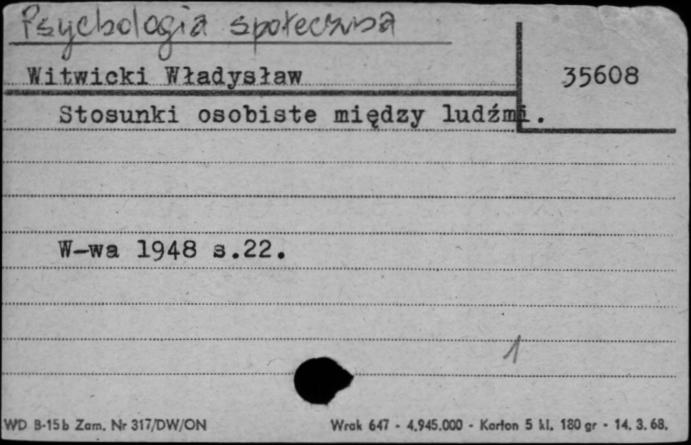 Psychologia społeczna
Witwicki Władysław
35608
Stosunki osobiste między ludźmi.
W-wa 1948 s.22.
1
WD B-15b Zam. Nr 317/DW/ON
Wrak 647 - 4.945.000 - Karton 5 kl. 180 gr - 14. 3. 68.